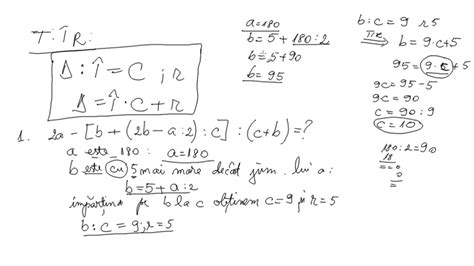 T:Î R:
Δ : Î = C ; r
Δ = Î · C + r
1. 2a - [b + (2b - a : 2) : c] : (c+b) = ?
a este 180 : a=180
b este cu 5 mai mare decât jum. lui a:
b = 5 + a : 2
împărțind pe b la c obținem c = 9 și r = 5
b : c = 9 ; r = 5
a = 180
b = 5 + 180 : 2
b = 5 + 90
b = 95
b : c = 9 r 5
b = 9 · c + 5
95 = 9 · c + 5
9c = 95 - 5
9c = 90
c = 90 : 9
c = 10
180 : 2 = 90
18
= = 0
0
=